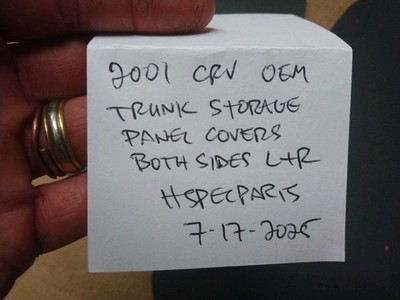 2001 CRV OEM
TRUNK STORAGE
PANEL COVERS
BOTH SIDES L+R
HSPECPARTS
7-17-2025